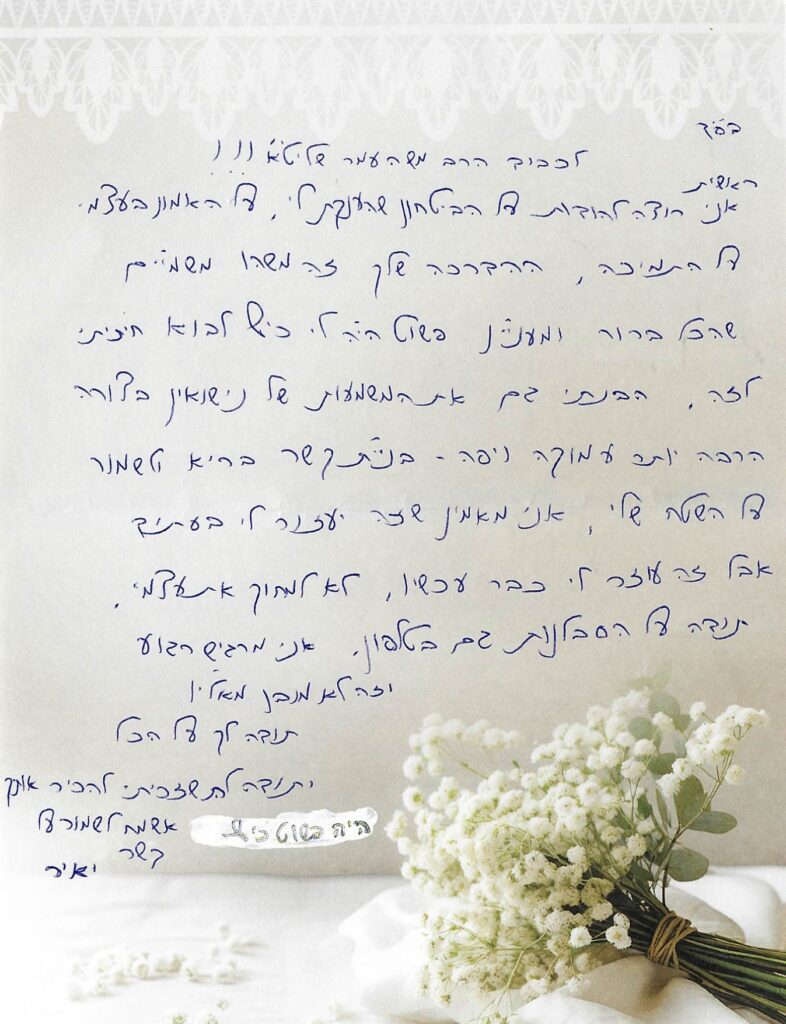 בס"ד
לכבוד הרב משה עמר שליט"א !!!
ראשית
אני רוצה להודות על הביטחון שהענקת לי, על האמון בעצמי
על התמיכה, ההדרכה שלך זה משהו משמיים
שהכל ברור ומעניין פשוט היה לי כיף לבוא חיכיתי
לזה. הבנתי גם את המשמעות של נישואין בצורה
הרבה יותר עמוקה ויפה - בניית קשר בריא ולשמור
על השטח שלי, אני מאמין שזה יעזור לי בעתיד
אבל זה עוזר לי כבר עכשיו, לא למחוק את עצמי.
תודה על הסבלנות גם בטלפון. אני מרגיש רגוע
וזה לא מובן מאליו
תודה לך על הכל
ותודה לה' שזכיתי להכיר אותך
היה פשוט כיף.
אשמח לשמור על
קשר
יאיר